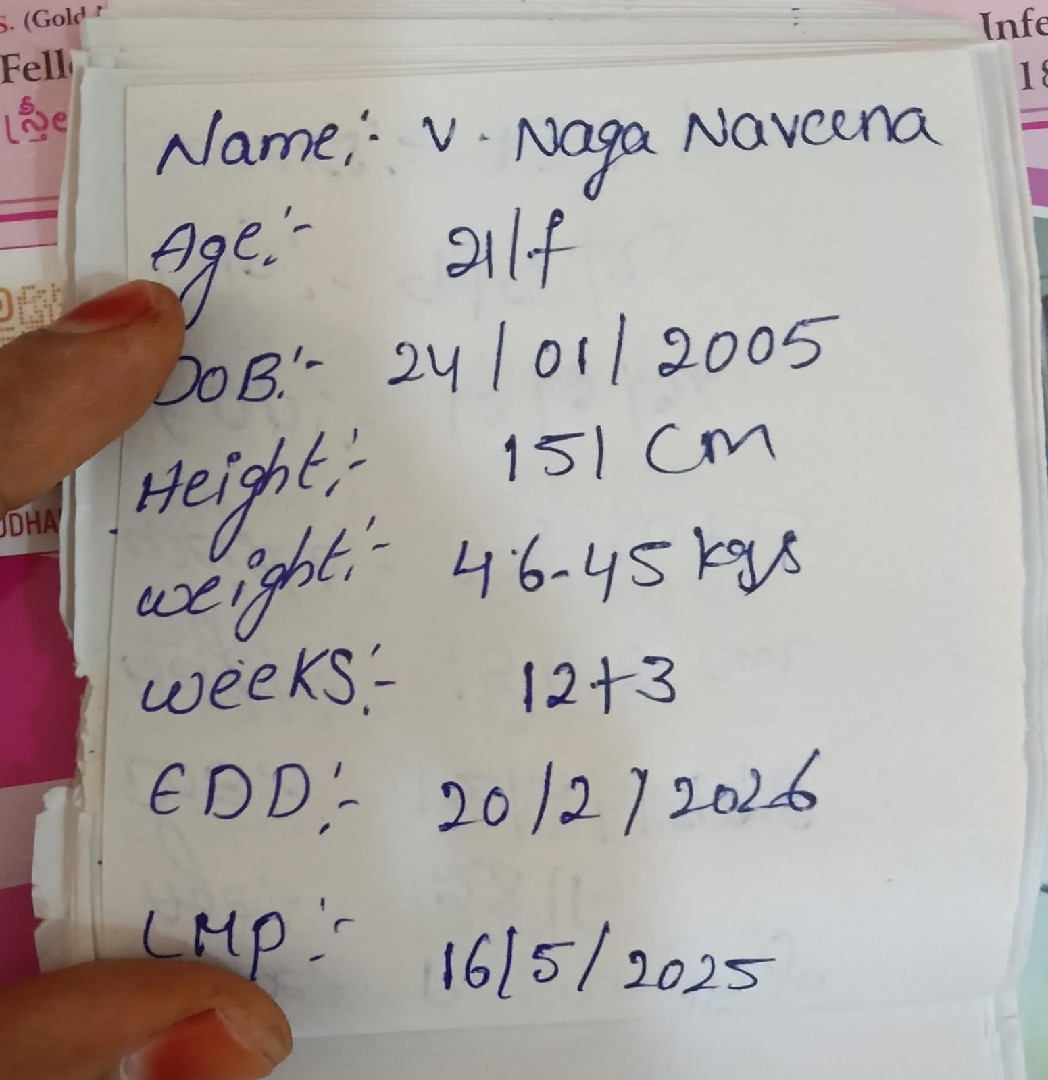 s. (Gold
Fell
Infe
18
Name:- V. Naga Naveena
Age:- 21/f
DOB:- 24/01/2005
Height:- 151 cm
weight:- 46.45 kgs
weeks:- 12+3
EDD:- 20/2/2026
LMP:- 16/5/2025